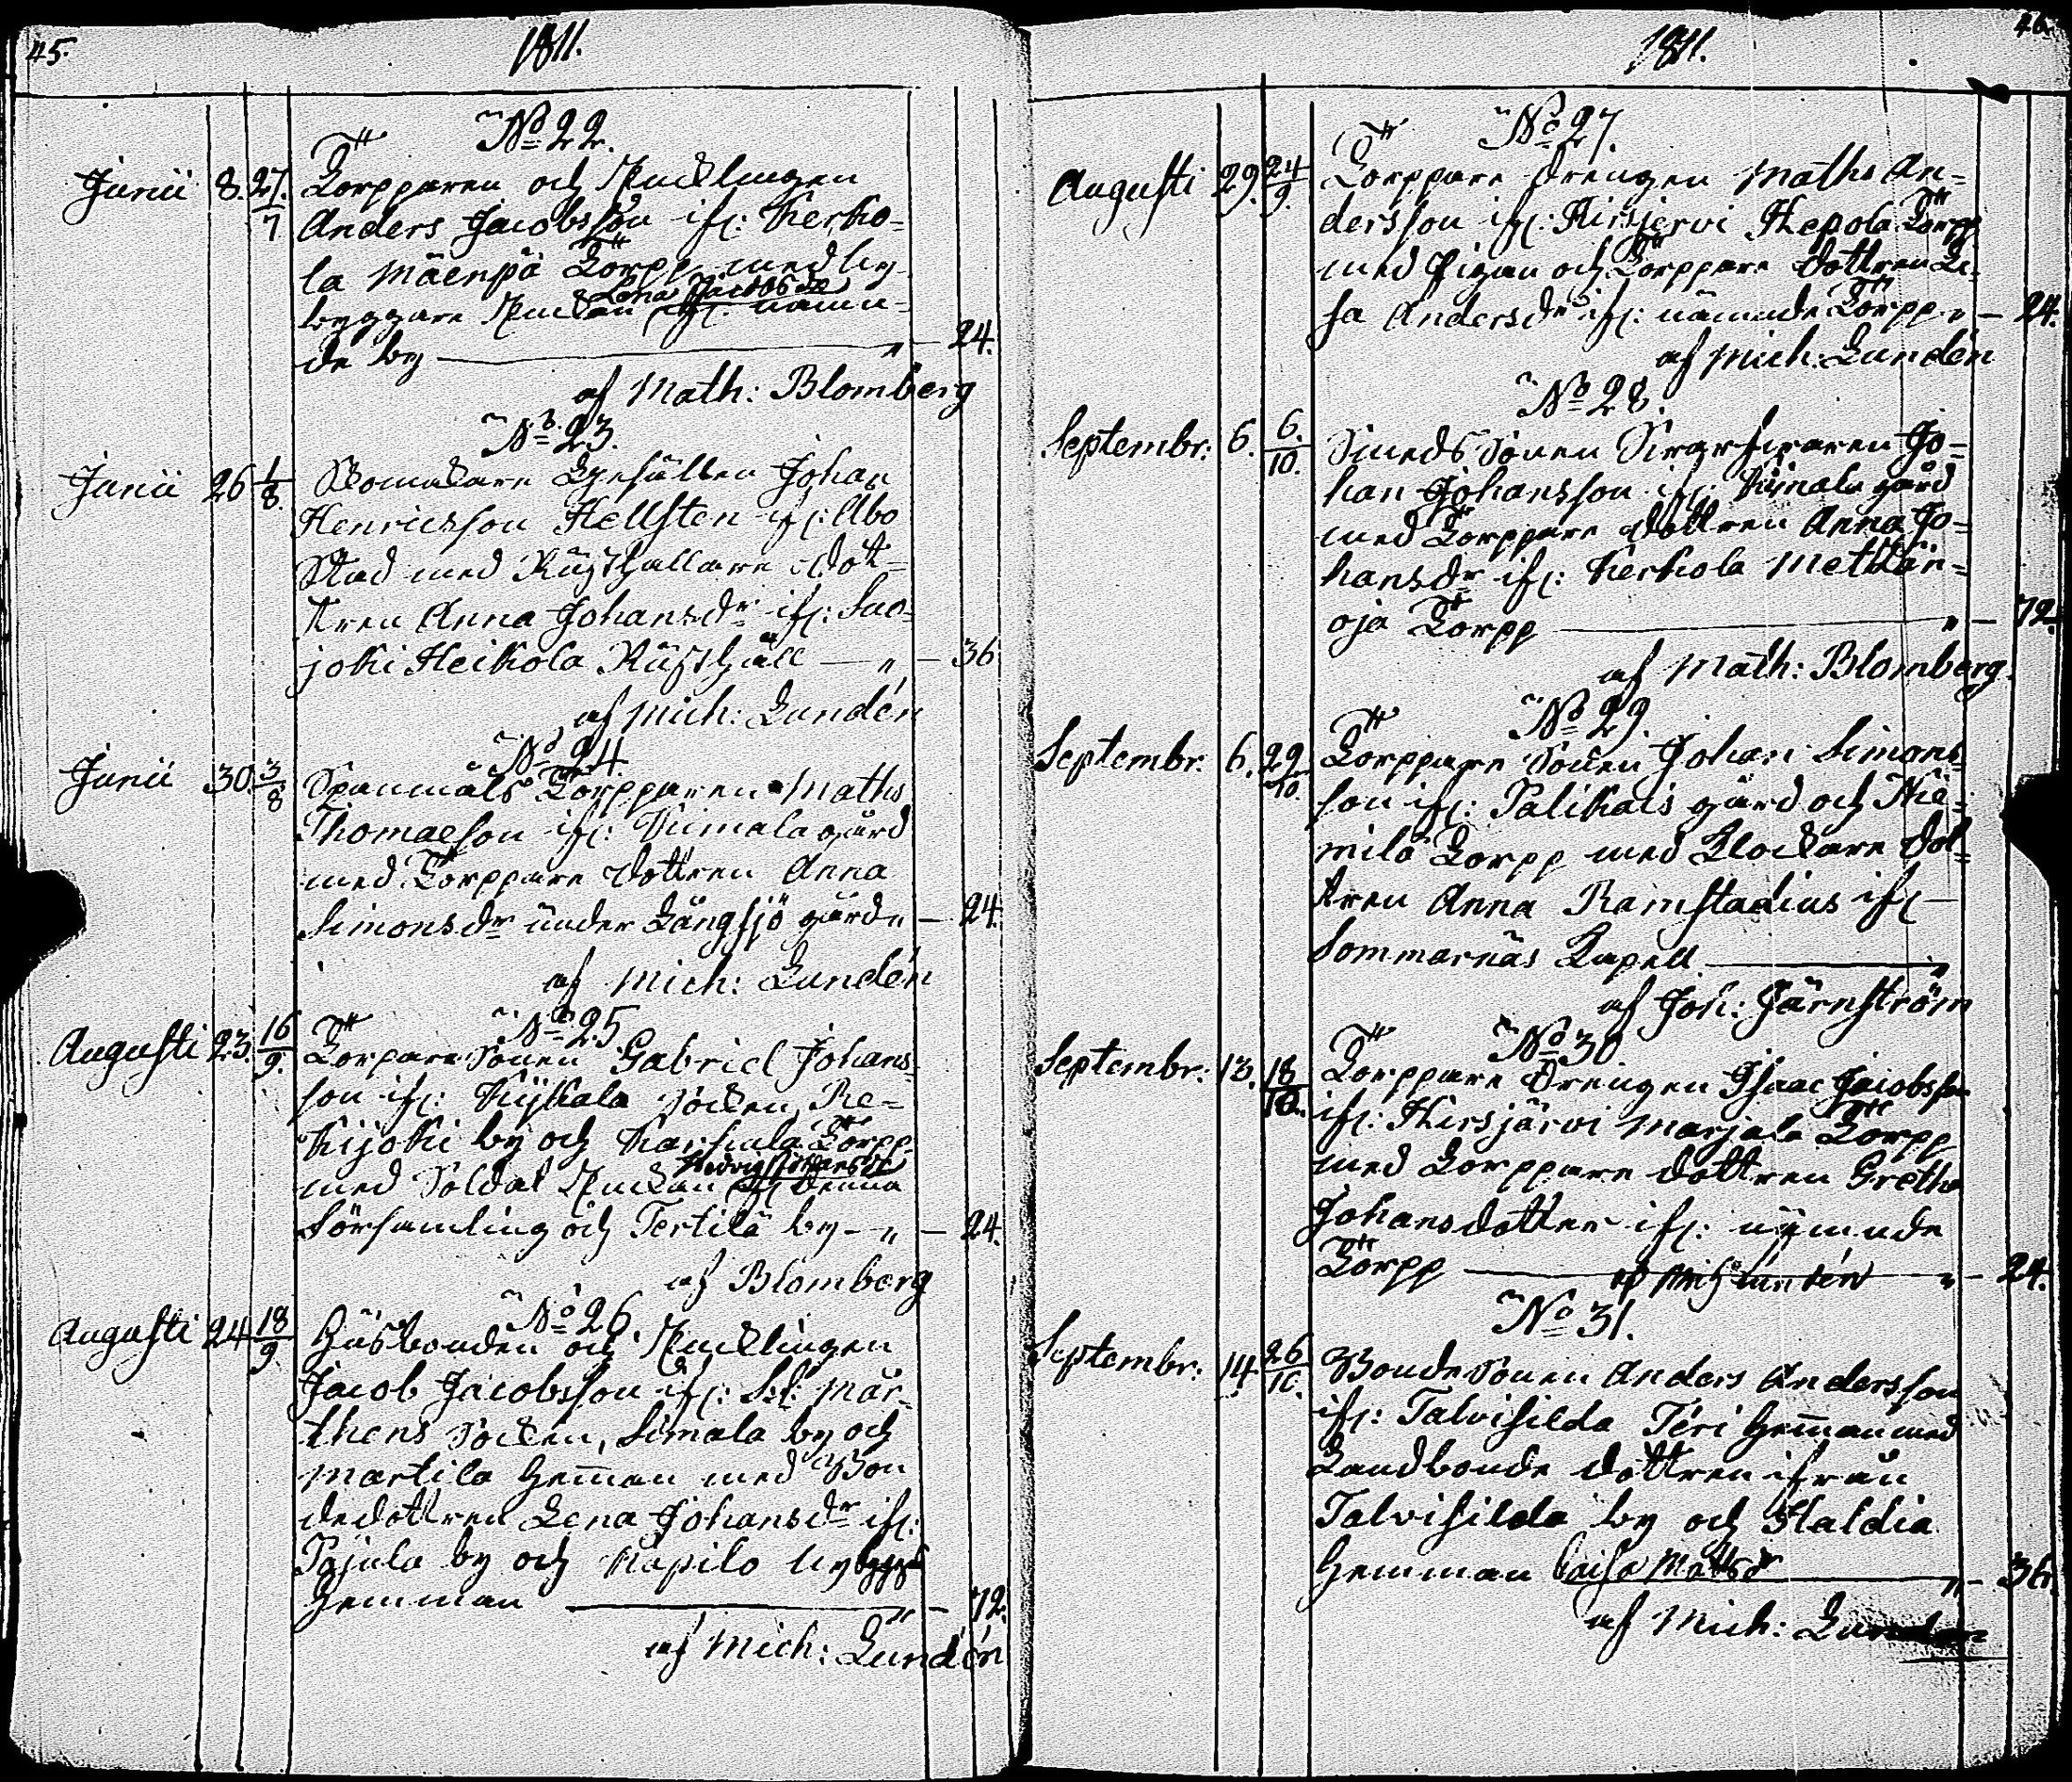 45.
1811.
No 22.
Junii 8. 27/7 Torpparen och Enklingen
Anders Jacobsson ifr: Kerko-
la Mäenpä Torpp med In-
Lena Jacobsdr
byggare Enkan ifr: nämn-
de by — " — 24.
af Math: Blomberg
No 23.
Junii 26 1/8. Skomakare Gesällen Johan
Henricsson Hellsten ifr: Åbo
Stad med Rusthållare Dot-
tren Anna Johansdr ifr: Suo-
joki Heikola Rusthåll — " — 36
af Mich: Lundén
No 24.
Junii 30. 3/8 Spanmåls Torpparen Maths
Thomaeson ifr: Kiimala gård
med Torppare dottren Anna
Simonsdr under Långsjö gård " — 24.
af Mich: Lundén
No 25.
Augusti 23. 16/9. Torpare Sonen Gabriel Johans-
son ifr: Kijkala Socken, Re-
kijoki by och Karhula Torpp
Hedvig Johansdr
med Soldat Enkan ifr denna
Församling och Tertilä by — " — 24.
af Blomberg
No 26
Augusti 24 18/9 Husbonden och Enklingen
Jacob Jacobsson ifr: St: Mär-
thens Socken, Simala by och
Martila Hemman med Bon
dedottren Lena Johansdr ifr:
Pajula by och Kapilo
Hemman — " — 72.
af Mich: Lundén
46.
1811.
No 27.
Augusti 29. 24/9. Torppare Drengen Maths An-
dersson ifr: Hirsjervi Hepola Torpp
med Pigan och Torppare Dottren Li-
sa Andersdr ifr: nämnde Torpp " — 24.
af Mich: Lundén
No 28.
Septembr: 6. 6./10. Smeds Sonen Jo-
han Johansson ifr: Kiimala gård
med Torppare dottren Anna Jo-
hansdr ifr: Kerkola Mettän-
oja Torpp — " — 72.
af Math: Blomberg.
No 29.
Septembr: 6. 29/10. Torppare Sonen Johan Simons-
son ifr: Palikais gård och Nie-
milä Torpp med Klockare Dot-
tren Anna Ramstadius ifr
Sommarnäs Kapell — "
af Joh: Järnström
No 30
Septembr: 13. 18/10. Torppare Drengen Isaac Jacobsson
ifr: Hirsjärvi Marjala Torpp
med Torppare dottren Gretha
Johansdotter ifr: nämnde
Torpp — af Mich Lundén " — 24.
No 31.
Septembr: 14. 26/10. Bonde Sonen Anders Andersson
ifr: Talvisilda Teri Hemman med
Landbonde dottren ifrån
Talvisilda by och Haldia
Hemman Caisa Mattsdr — " — 36.
af Mich: